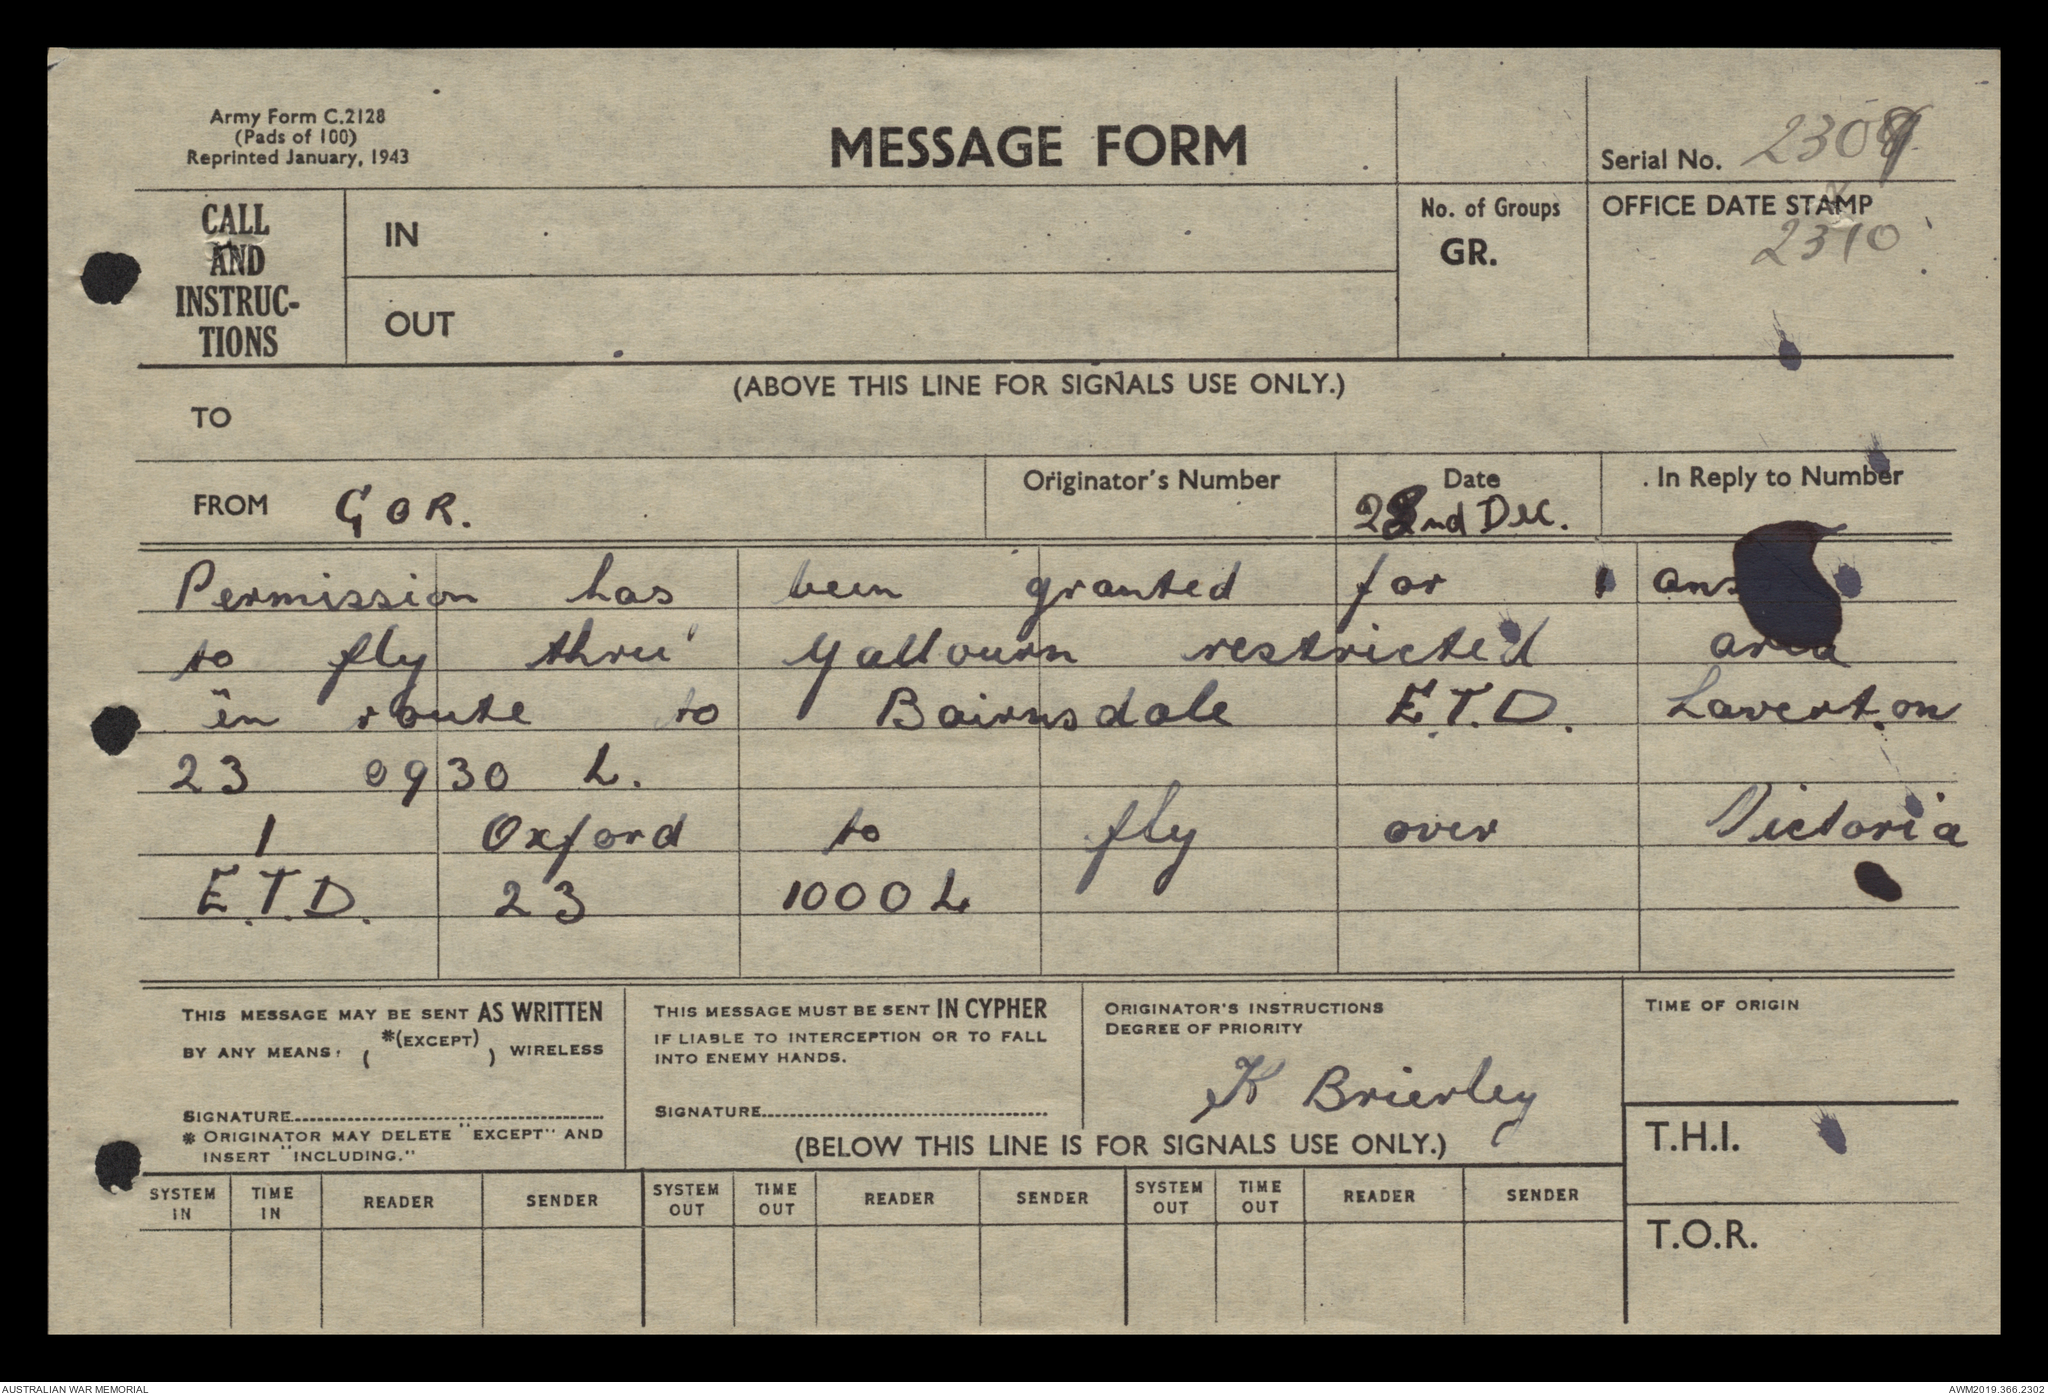 Army Form C.2128
(Pads of 100)
Reprinted January, 1943
MESSAGE FORM
Serial No.
CALL AND INSTRUC-TIONS
IN
OUT
No. of Groups
GR.
OFFICE DATE STAMP
2310
(ABOVE THIS LINE FOR SIGNALS USE ONLY.)
TO
FROM G O R.
Originator's Number
Date
22nd Dec.
In Reply to Number
Permission has been granted for 1
to fly thru' Yallourn restricted area
en route to Bairnsdale E.T.D. Laverton
23 0930 L.
1 Oxford to fly over Victoria
E.T.D. 23 1000 L
THIS MESSAGE MAY BE SENT AS WRITTEN
BY ANY MEANS. ( *(EXCEPT) ) WIRELESS
SIGNATURE
* ORIGINATOR MAY DELETE "EXCEPT" AND
INSERT "INCLUDING."
THIS MESSAGE MUST BE SENT IN CYPHER
IF LIABLE TO INTERCEPTION OR TO FALL
INTO ENEMY HANDS.
SIGNATURE
ORIGINATOR'S INSTRUCTIONS
DEGREE OF PRIORITY
K Brierley
TIME OF ORIGIN
(BELOW THIS LINE IS FOR SIGNALS USE ONLY.)
T.H.I.
SYSTEM IN TIME IN READER SENDER SYSTEM OUT TIME OUT READER SENDER SYSTEM OUT TIME OUT READER SENDER
T.O.R.
AUSTRALIAN WAR MEMORIAL
AWM2019.366.2302